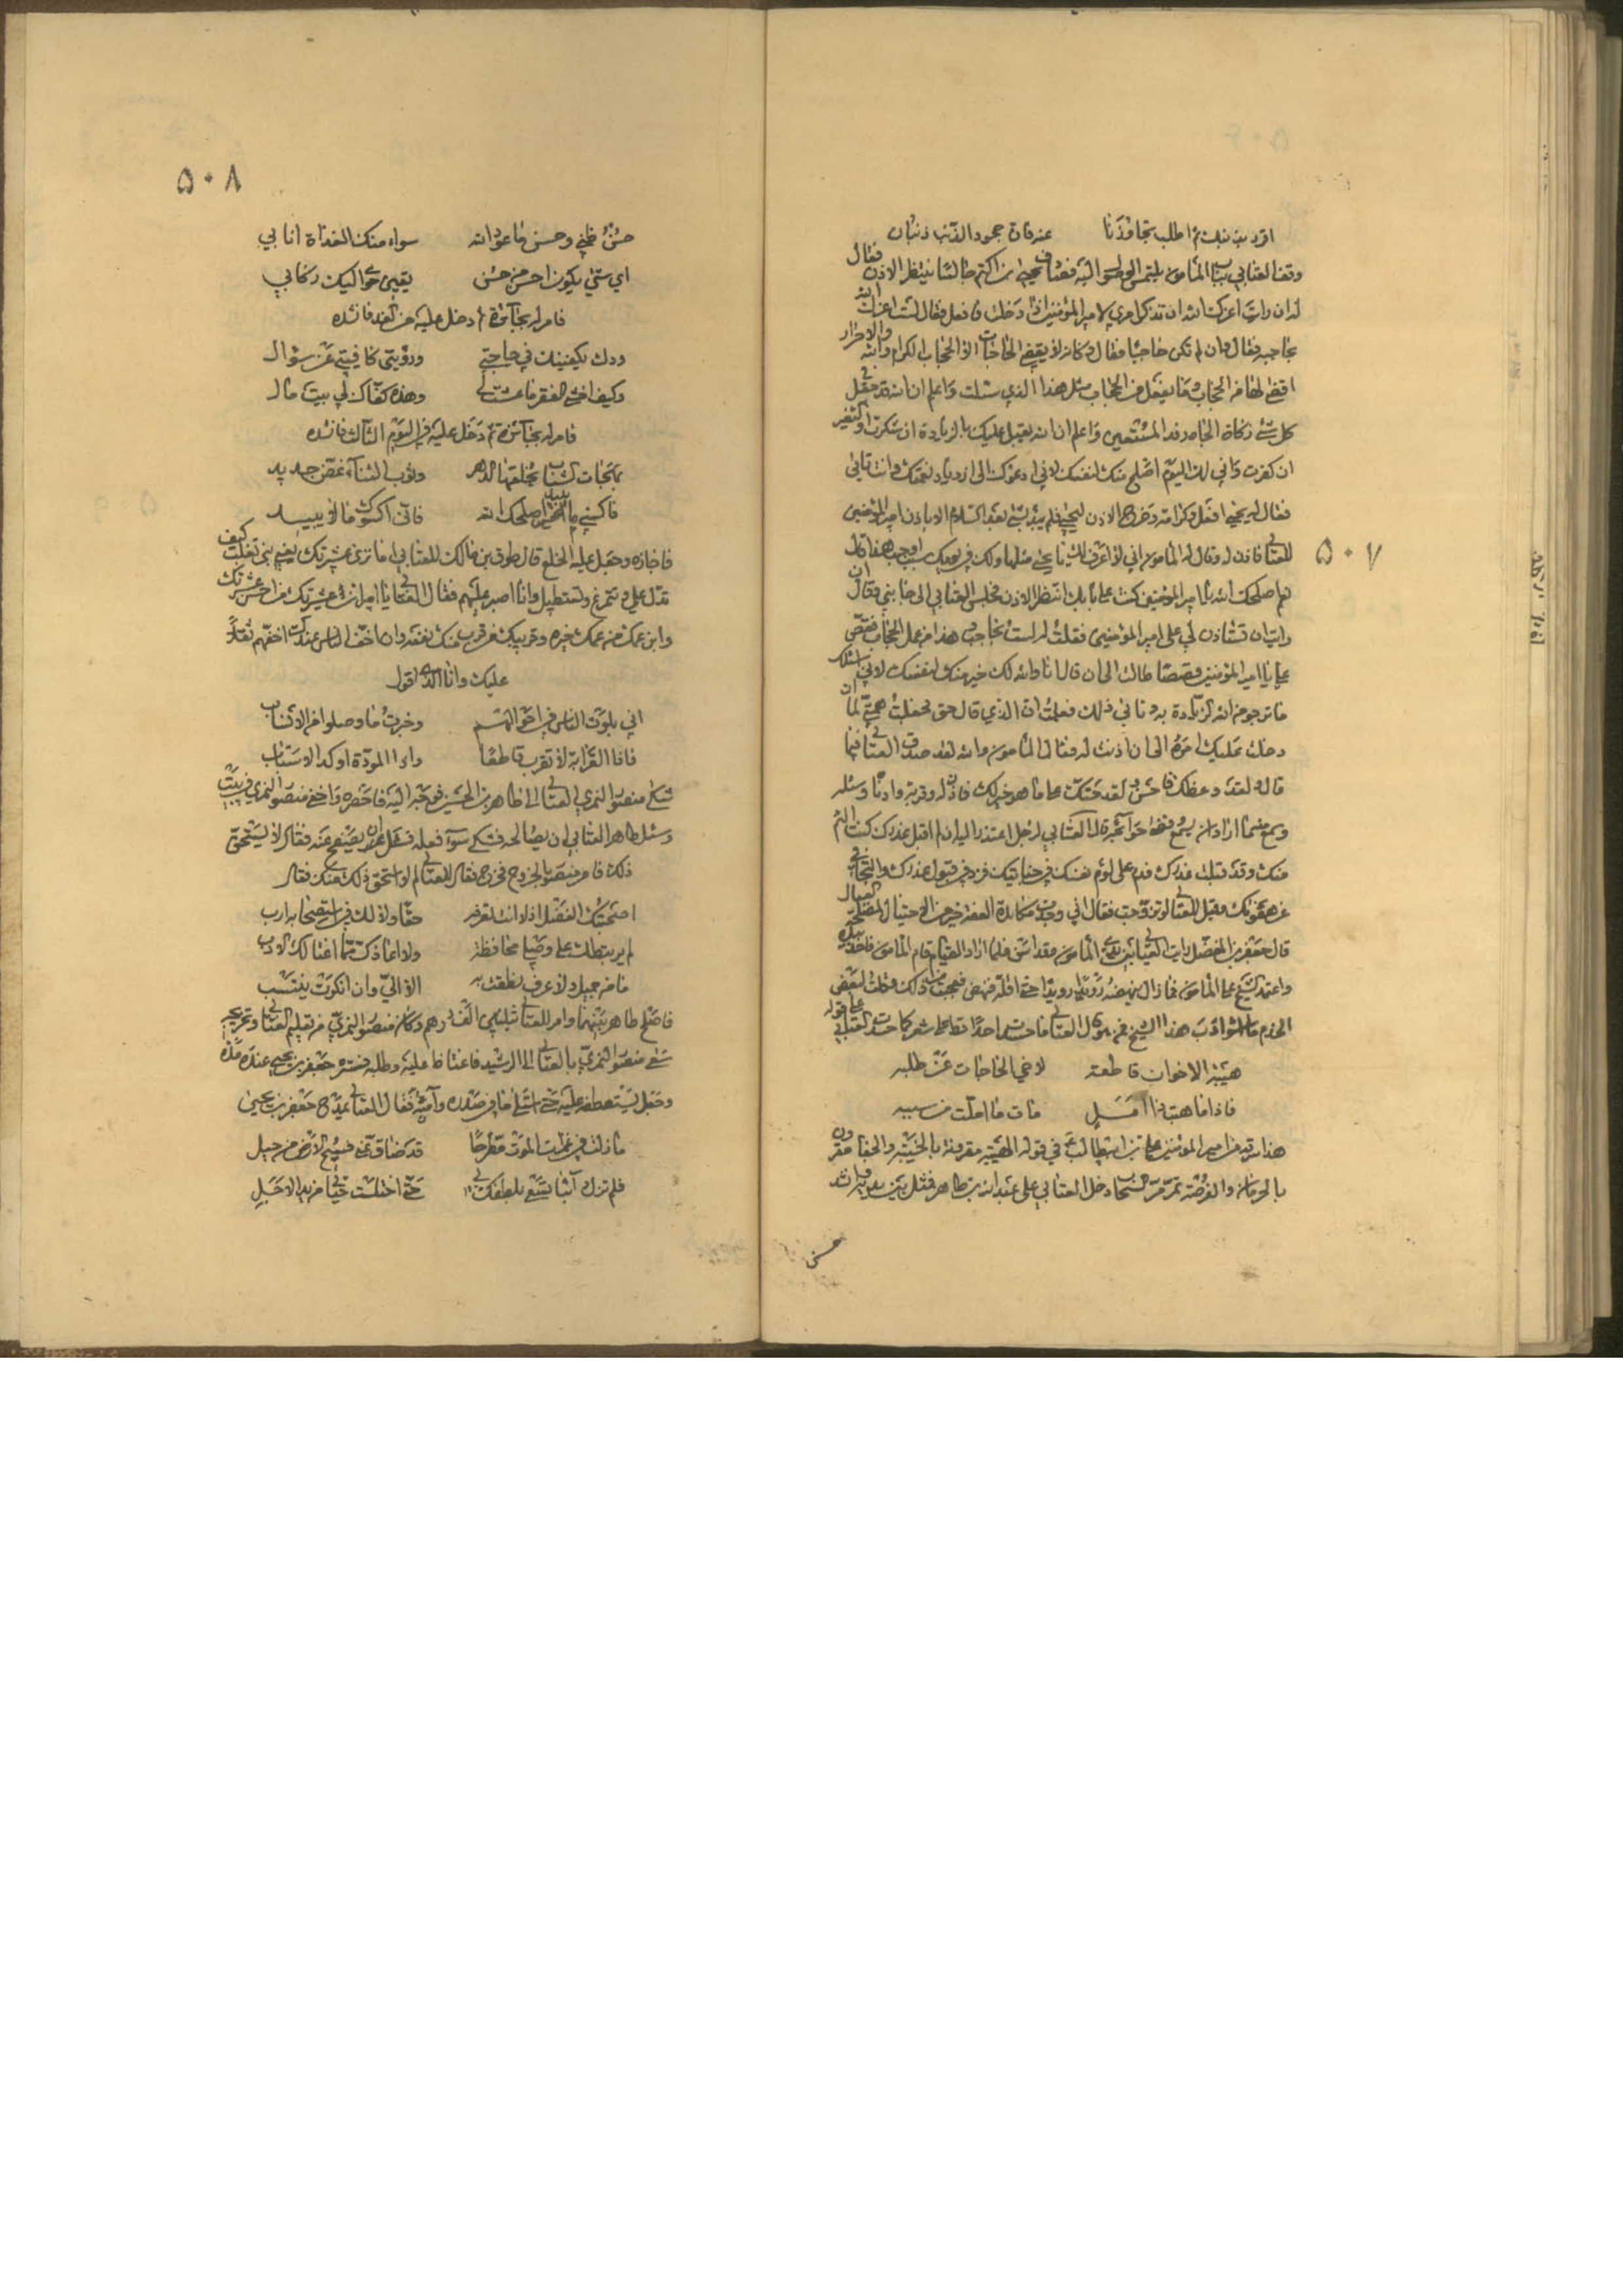 ۵۰۷
اقر بذنبك ثم اطلب تجاوزنا عنه فان جحود الذنب ذنبان
وقف العتابي بباب المأمون يلتمس الوصول اليه فصادف يحيى بن اكثم جالسا ينتظر الاذن فقال
له ان رايت اعزك الله ان تذكر امري لامير المؤمنين اذا دخلت فافعل فقال لست اعزك الله
بحاجبه فقال وان لم تكن حاجبا فقال وكانه لا يقضي الحاجات الا الحجاب الكرام والاحرار والله
كل شئ زكاة الجاه رفد المستعين واعلم ان الله يقبل عليك بالزيادة ان شكرت او التغير
ان كفرت واني لك اليوم اصلح منك لنفسك لاني ادعوك الى ازدياد نعمتك وانت تابى
فقال له يحيى افعل وكرامة وخرج الاذن ليحيى فلم يبدء بشئ بعد السلام الا باذن امير المؤمنين
للعتابي فاذن له
نعم اصلحك الله يا امير المؤمنين كنت على بابك انتظر الاذن فجلس العتابي الى جانبي فقال ان
رايت ان تستاذن لي على امير المؤمنين فقلت له لست بحاجب هذا من عمل الحجاب فقص
علي يا امير المؤمنين قصصا طالت الى ان قال انا والله لك خير منك لنفسك لاني اسئلك
ما ترجو من الله الزيادة به وتابى ذلك فعلمت ان الذي قال حق فجعلت همتي لما ان
دخلت عليك امره الى ان اذنت له فقال المأمون والله لقد صدق العتابي فيما
قاله لقد وعظك فاحسن لقد حثك على ما هو خير لك فاذن له وقربه وادناه وسئله
وسمع منه ما اراد ان يسمع
منك وقد قبلت عذرك فدم على لوم نفسك في جنايتك نزد في قبول عذرك والتجافي
عن هفوتك وقيل للعتابي لو تزوجت فقال اني وجدت مكابدة العفة خير من الاحتيال لمصلحة العيال
قال جعفر بن المفضل رايت العتابي بين يدي المأمون وقد اسن فلما اراد القيام قام المأمون فاخذ بيده
واعتمد الشيخ على المأمون فما زال ينهضه رويدا رويدا حتى اقله فنهض فعجبت من ذلك وقلت لبعض
الخدم ما اسوأ ادب هذا الشيخ فمن هو قال العتابي فما حسدت احدا قط على شعر كما حسدت العتابي على قوله
هيبة الاخوان قاطعة لاخي الحاجات عن طلبه
فاذا ما هبت ذا امل مات ما املت من سببه
هذا سرقه من امير المؤمنين علي بن ابيطالب ع في قوله الهيبة مقرونة بالخيبة والحياء مقرون
بالحرمان والفرصة تمر مر السحاب دخل العتابي على عبد الله بن طاهر فمثل بين يديه وانشد
حسن
۵۰۸
حسن ظني وحسن ما عود الله سواء منك الغداة اتى بي
اي شئ يكون احسن من حسن يقين حدا اليك ركابي
فامر له بجائزة ثم دخل عليه من الغد فانشده
ودك يكفينك في حاجتي ورؤيتي كافيتي عن سؤال
وكيف اخشى الفقر ما عشت لي وهذه كفاك لي بيت مال
فامر له بجائزة ثم دخل عليه في اليوم الثالث فانشده
بهجات الثياب يخلقها الدهر وثوب الثناء غض جديد
فاكسني ما يبيد اصلحك الله فاني اكسوك ما لا يبيد
فاجازه وخلع عليه الخلع قال طوق بن مالك للعتابي اما ترى عشيرتك يعني بني تغلب كيف
تدل علي وتتمرغ وتستطيل وانا اصبر عليهم فقال العتابي ايها الامير ان عشيرتك من احسن عشرتك
وابن عمك من عمك خيره وقريبك من قرب منك نفعه وان اخف الناس عندك اخفهم ثقلا
عليك وانا الذي اقول
اني بلوت الناس في احوالهم وخبرت ما وصلوا من الانساب
فاذا القرابة لا تقرب قاطعا واذا المودة اوكد الاسباب
شكى منصور النمري العتابي الى طاهر بن الحسين فوجه اليه فاحضره واخفى منصور النمري في بيت
وسئل طاهر العتابي ان يصالحه فشكى سوء فعله فسئله ان يصفح عنه فقال لا يستحق
ذلك فامر منصورا بالخروج فخرج فقال للعتابي لم لا استحق ذلك منك فقال
اصحبتك الفضل اذ لا انت تعرفه حقا ولا لك في استصحابه ارب
لم يرتبطك على وصلي محافظة ولا اعاذك مما اغتالك الادب
ما من جميل ولا عرف نطقت به الا الي وان انكرت ينتسب
فاصلح طاهر بينهما وامر للعتابي بثلثين الف درهم وكان منصور النمري من تعليم العتابي وتخريجه
سعى منصور النمري بالعتابي الى الرشيد فاغتاظ عليه وطلبه فستره جعفر بن يحيى عنده مدة
وجعل يستعطفه عليه حتى استل ما في صدره وآمنه فقال العتابي يمدح جعفر بن يحيى
ما زلت في غمرات الموت مطرحا قد ضاق عني فسيح الارض من حيلي
فلم تزل دائبا تسعى بلطفك لي حتى اختلست حياتي من يدي الاجل